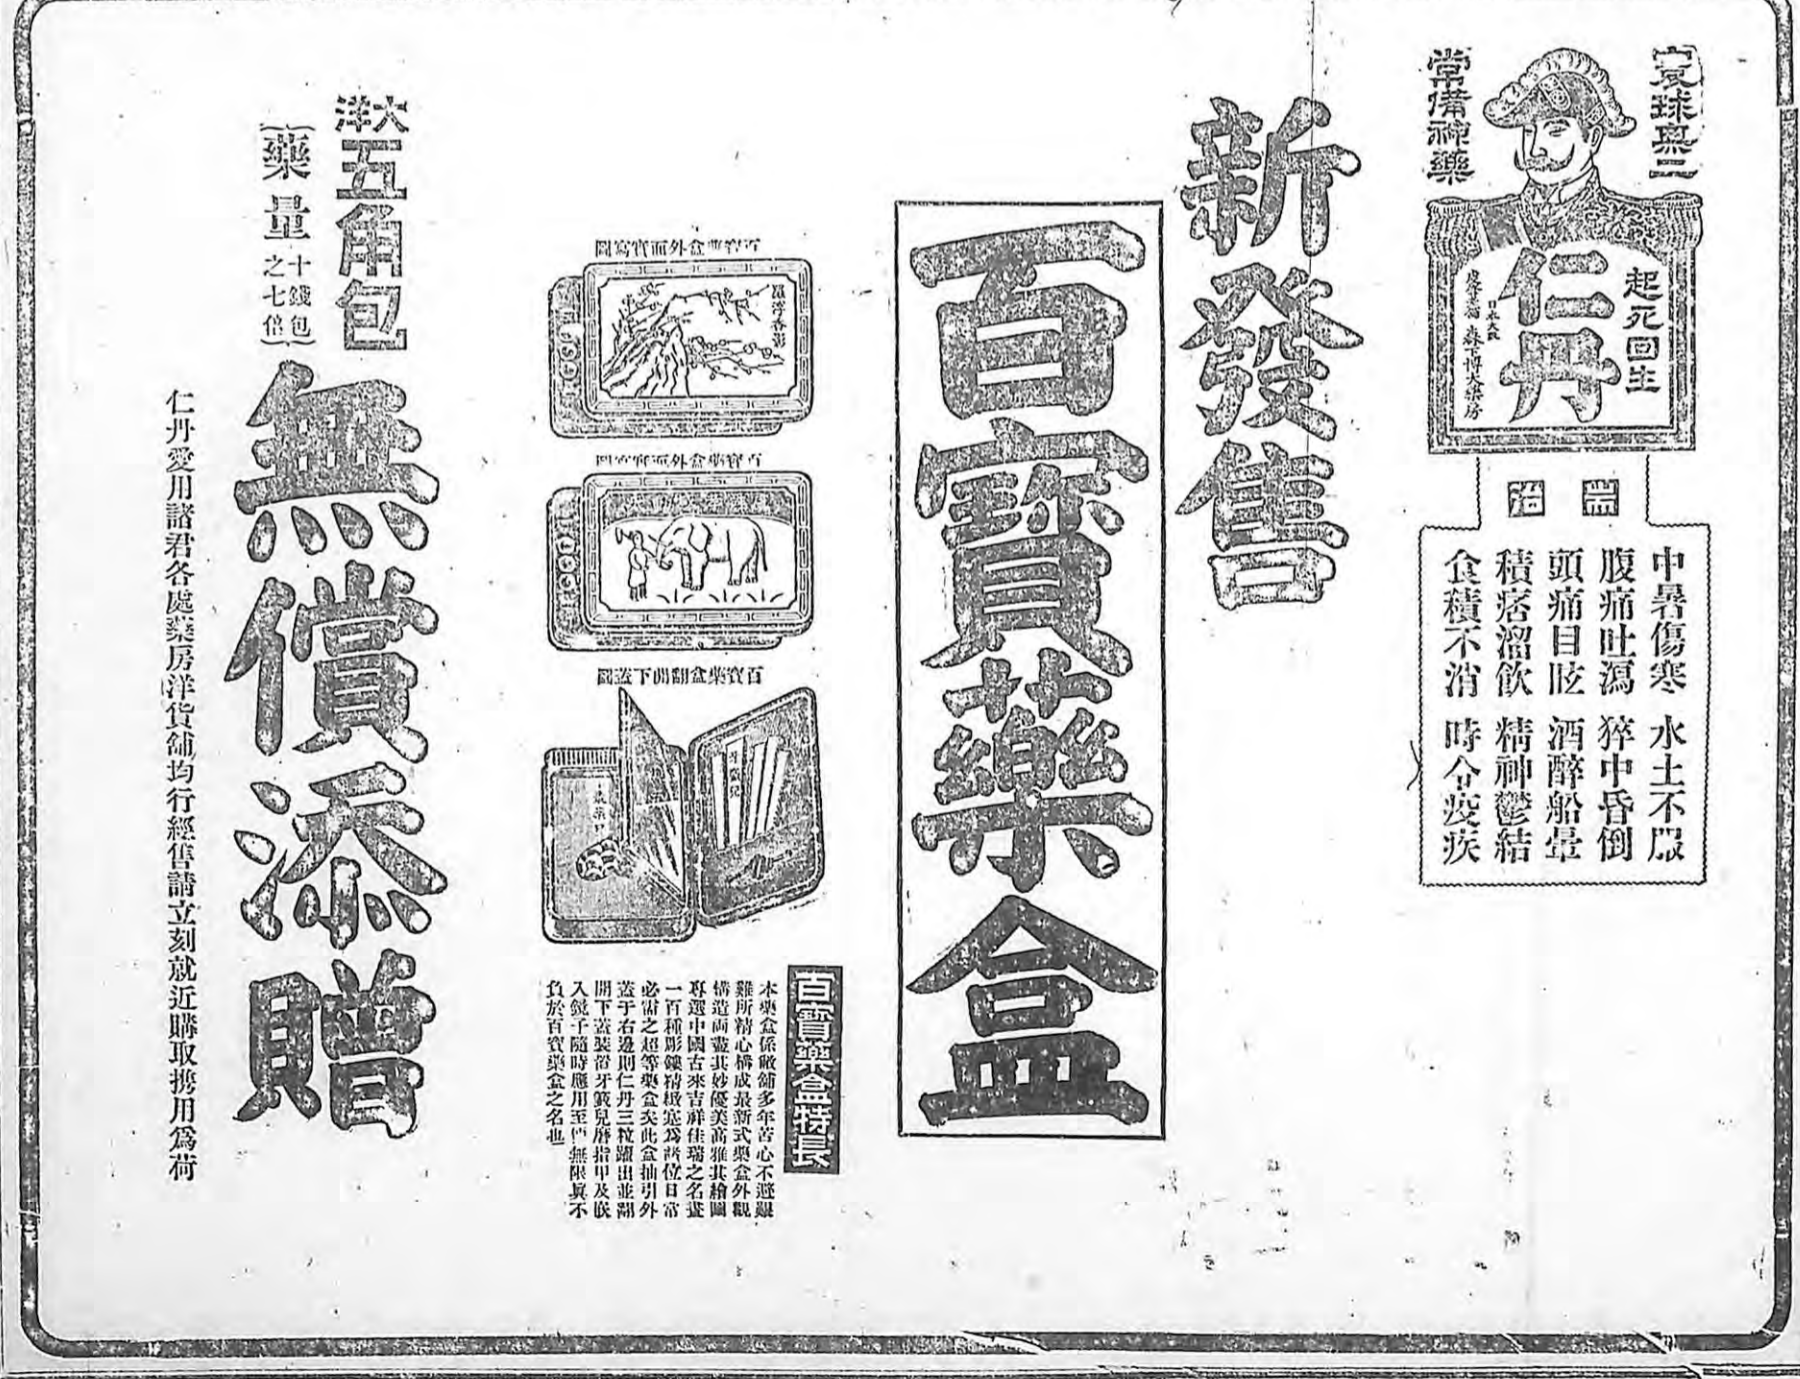 寰球無二
常備神藥
起死回生
仁丹
日本大阪
森下博大藥房
主治
中暑傷寒 水土不服
腹痛吐瀉 猝中昏倒
頭痛目眩 酒醉船暈
積痞溜飲 精神鬱結
食積不消 時令疫疾
新發售
百寶藥盒
百寶藥盒外面實寫圖
百寶藥盒外面實寫圖
百寶藥盒翻開下蓋圖
百寶藥盒特長
本藥盒係敝舖多年苦心不避艱
難所精心構成最新式藥盒外觀
構造両盡其妙優美高雅其繪圖
專選中國古來吉祥佳瑞之名畫
一百種彫鏤精緻寔爲諸位日常
必需之超等藥盒矣此盒抽引外
蓋于右邊則仁丹三粒躍出並翻
開下蓋裝置牙籤兒磨指甲及嵌
入鏡子隨時應用至便無限眞不
負於百寶藥盒之名也
大洋五角包
(藥量十錢包之七倍)
無償添贈
仁丹愛用諸君各處藥房洋貨舖均行經售請立刻就近購取携用爲荷